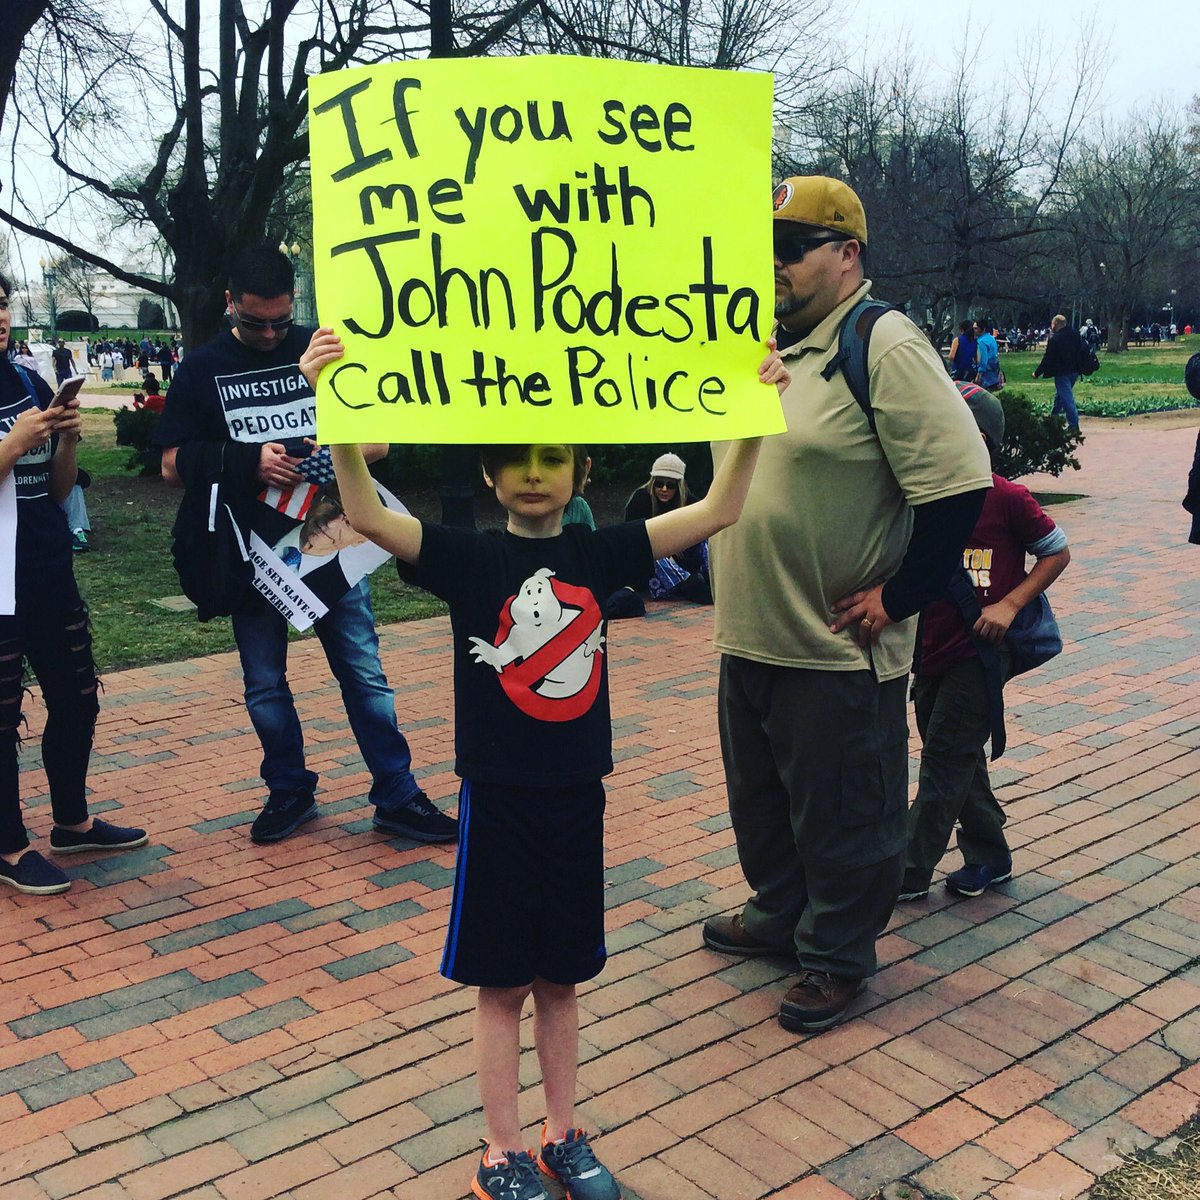 If you see
me with
John Podesta
call the Police
INVESTIGA
PEDOGAT
AGE SEX SLAVE O
UPPERER